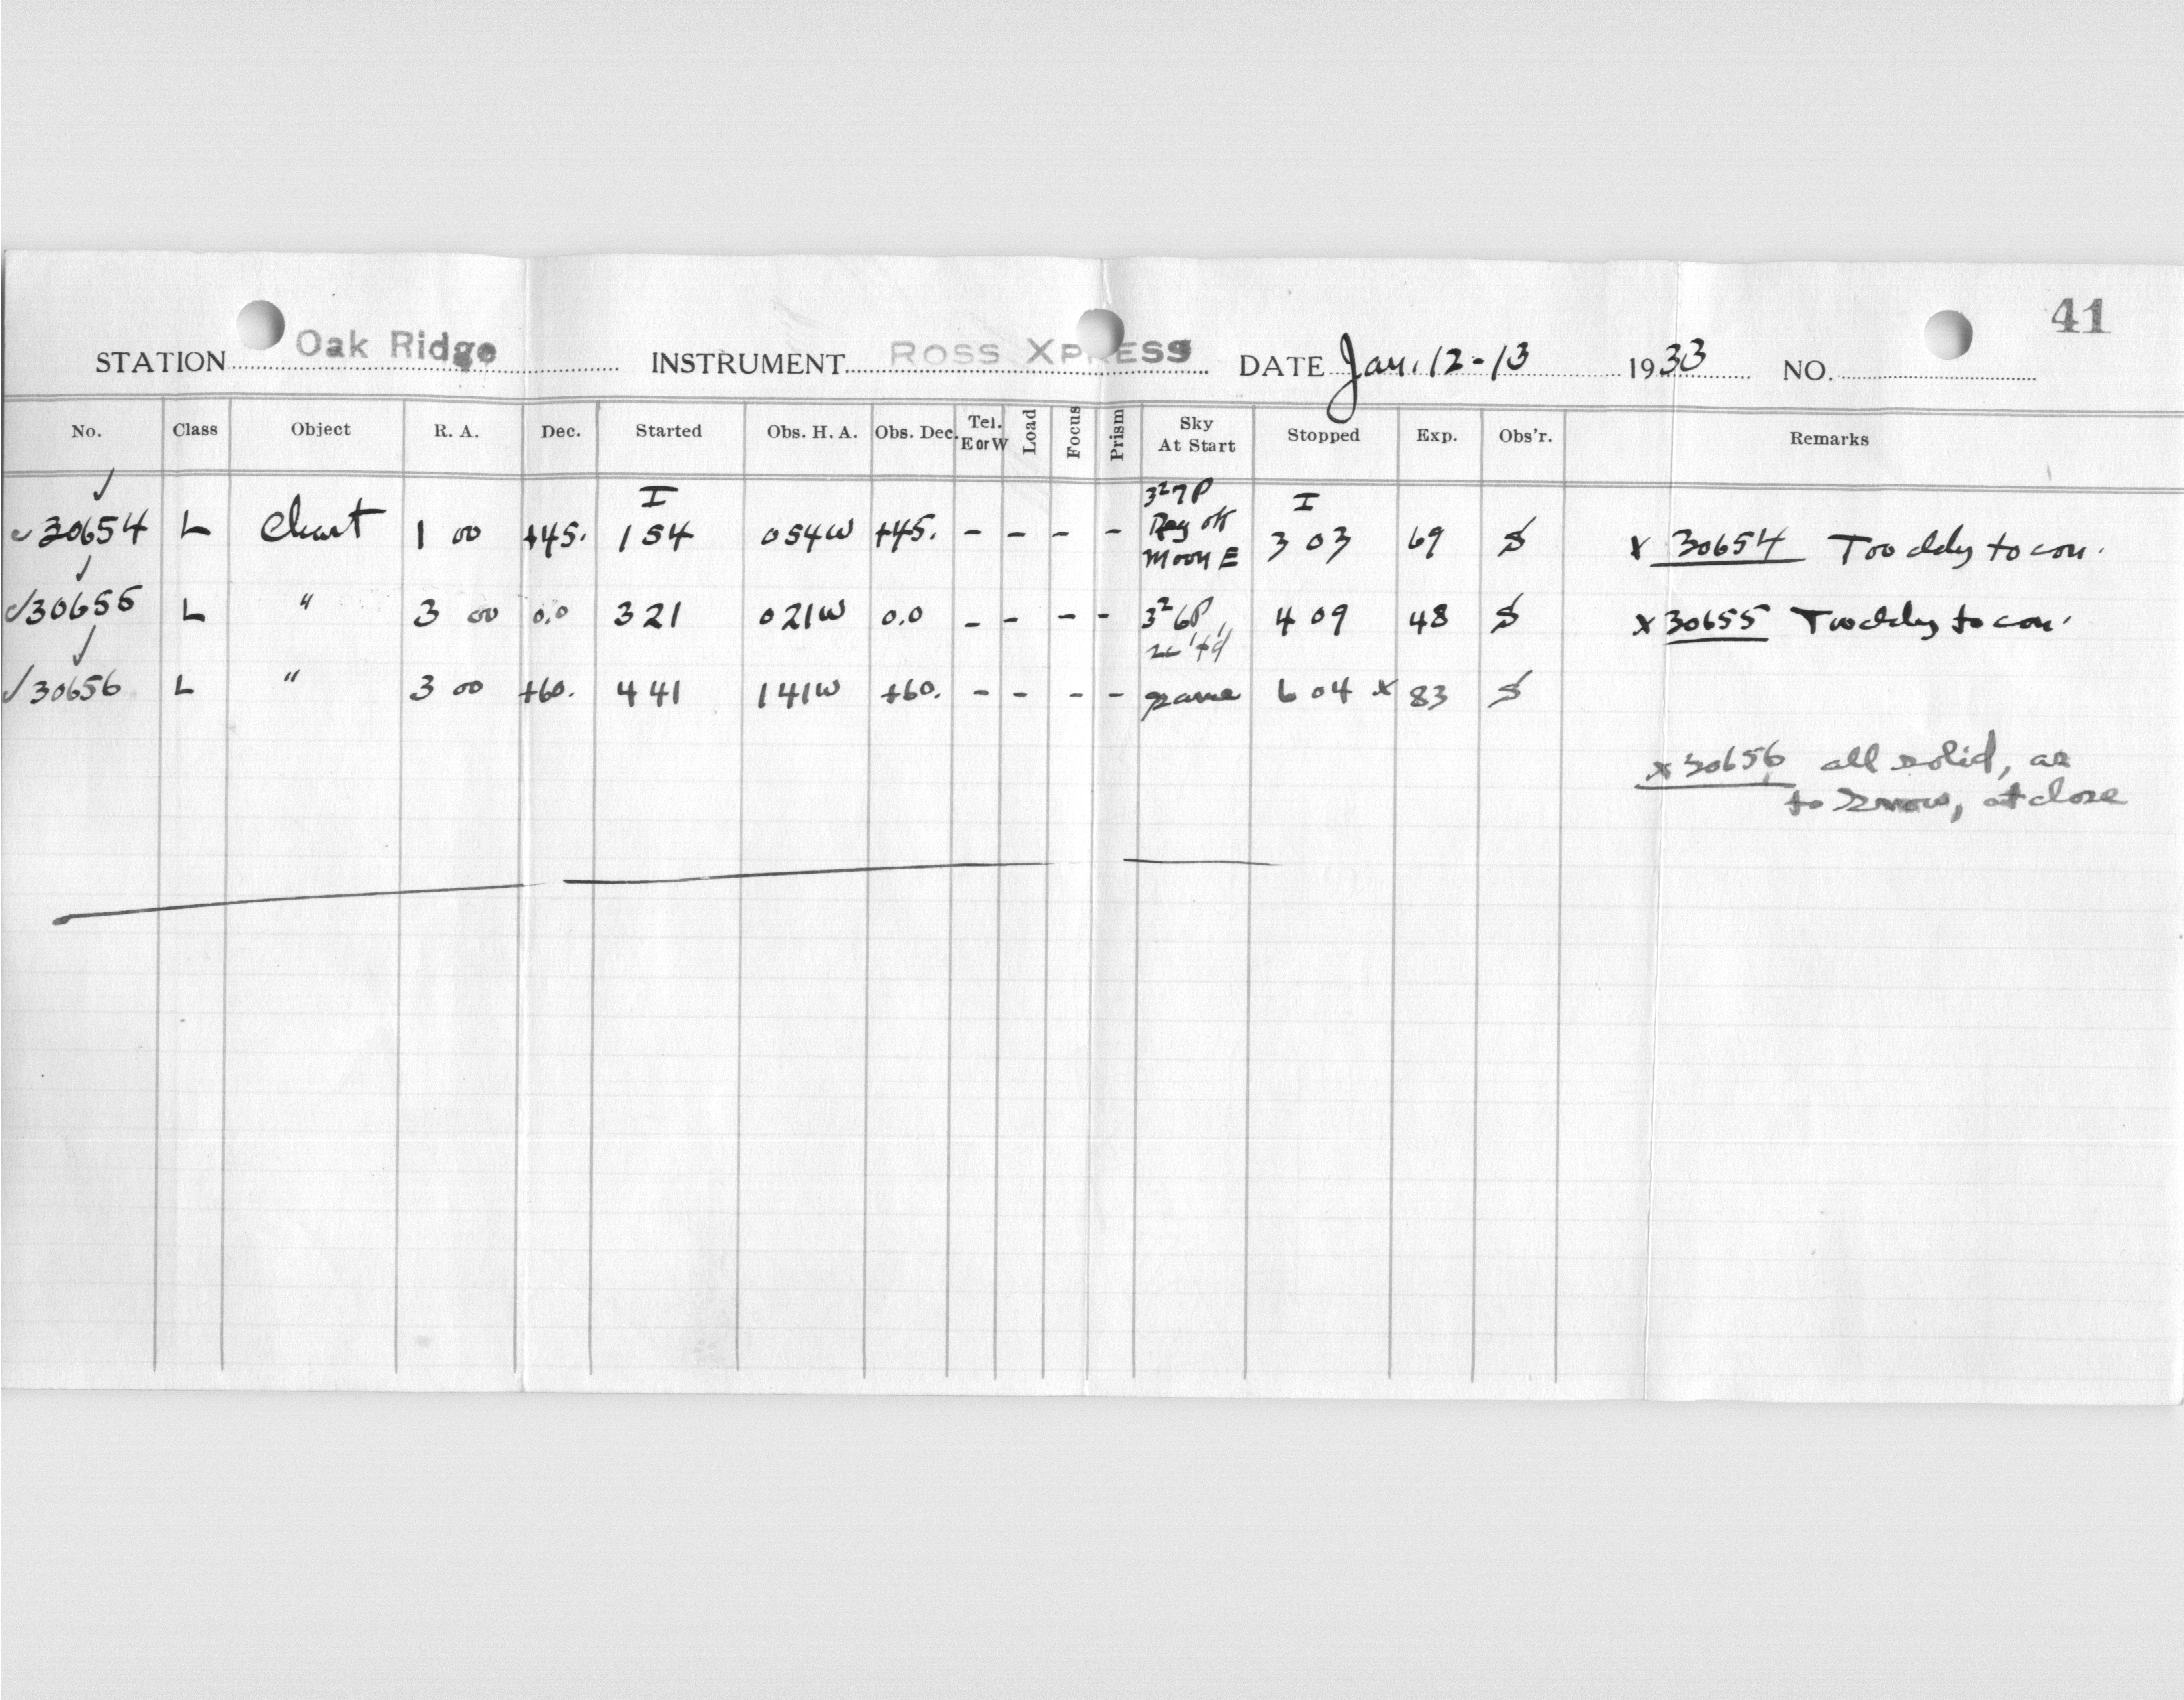 41
STATION Oak Ridge INSTRUMENT ROSS XPRESS DATE Jan. 12-13 1933 NO.
No. Class Object R. A. Dec. Started Obs. H. A. Obs. Dec. Tel. E or W Load Focus Prism Sky At Start Stopped Exp. Obs'r. Remarks
✓ 30654 L Chart 1 00 +45. I 1 54 0 54 W +45. - - - - 3 27P Reg ok Moon E I 3 03 69 S x 30654 Too cldy to con.
✓ 30655 L " 3 00 0.0 3 21 0 21 W 0.0 - - - - 3 26P 4 09 48 S x 30655 Too cldy to con.
✓ 30656 L " 3 00 +60. 4 41 1 41 W +60. - - - - same 6 04 x 83 S
x 30656 all solid, as
to snow, at close